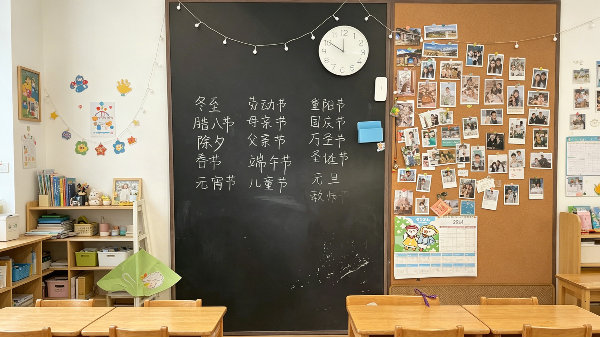 冬至
腊八节
除夕
春节
元宵节
劳动节
母亲节
父亲节
端午节
儿童节
重阳节
国庆节
万圣节
圣诞节
元旦
教师节